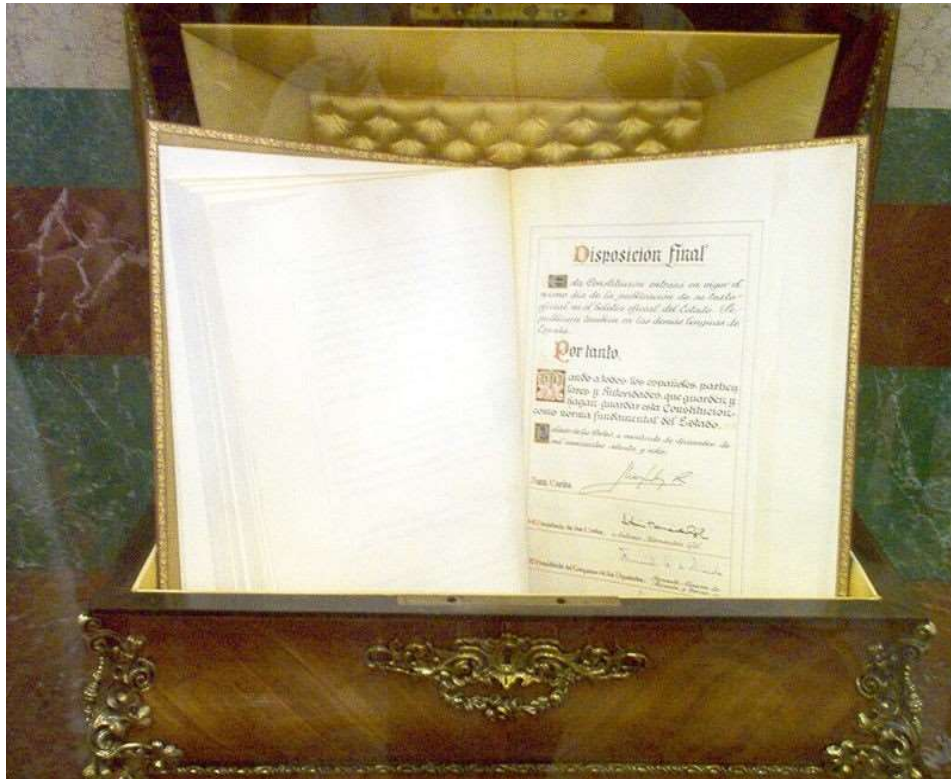 Disposición final
Esta Constitución entrará en vigor el
mismo día de la publicación de su texto
oficial en el boletín oficial del Estado. Se
publicará también en las demás lenguas de
España.
Por tanto,
Mando a todos los españoles, particu
lares y Autoridades, que guarden y
hagan guardar esta Constitución
como norma fundamental del Estado.
Palacio de las Cortes, a veintisiete de diciembre de
mil novecientos setenta y ocho.
Juan Carlos
El Presidente de las Cortes, Antonio Hernández Gil
El Presidente del Congreso de los Diputados,